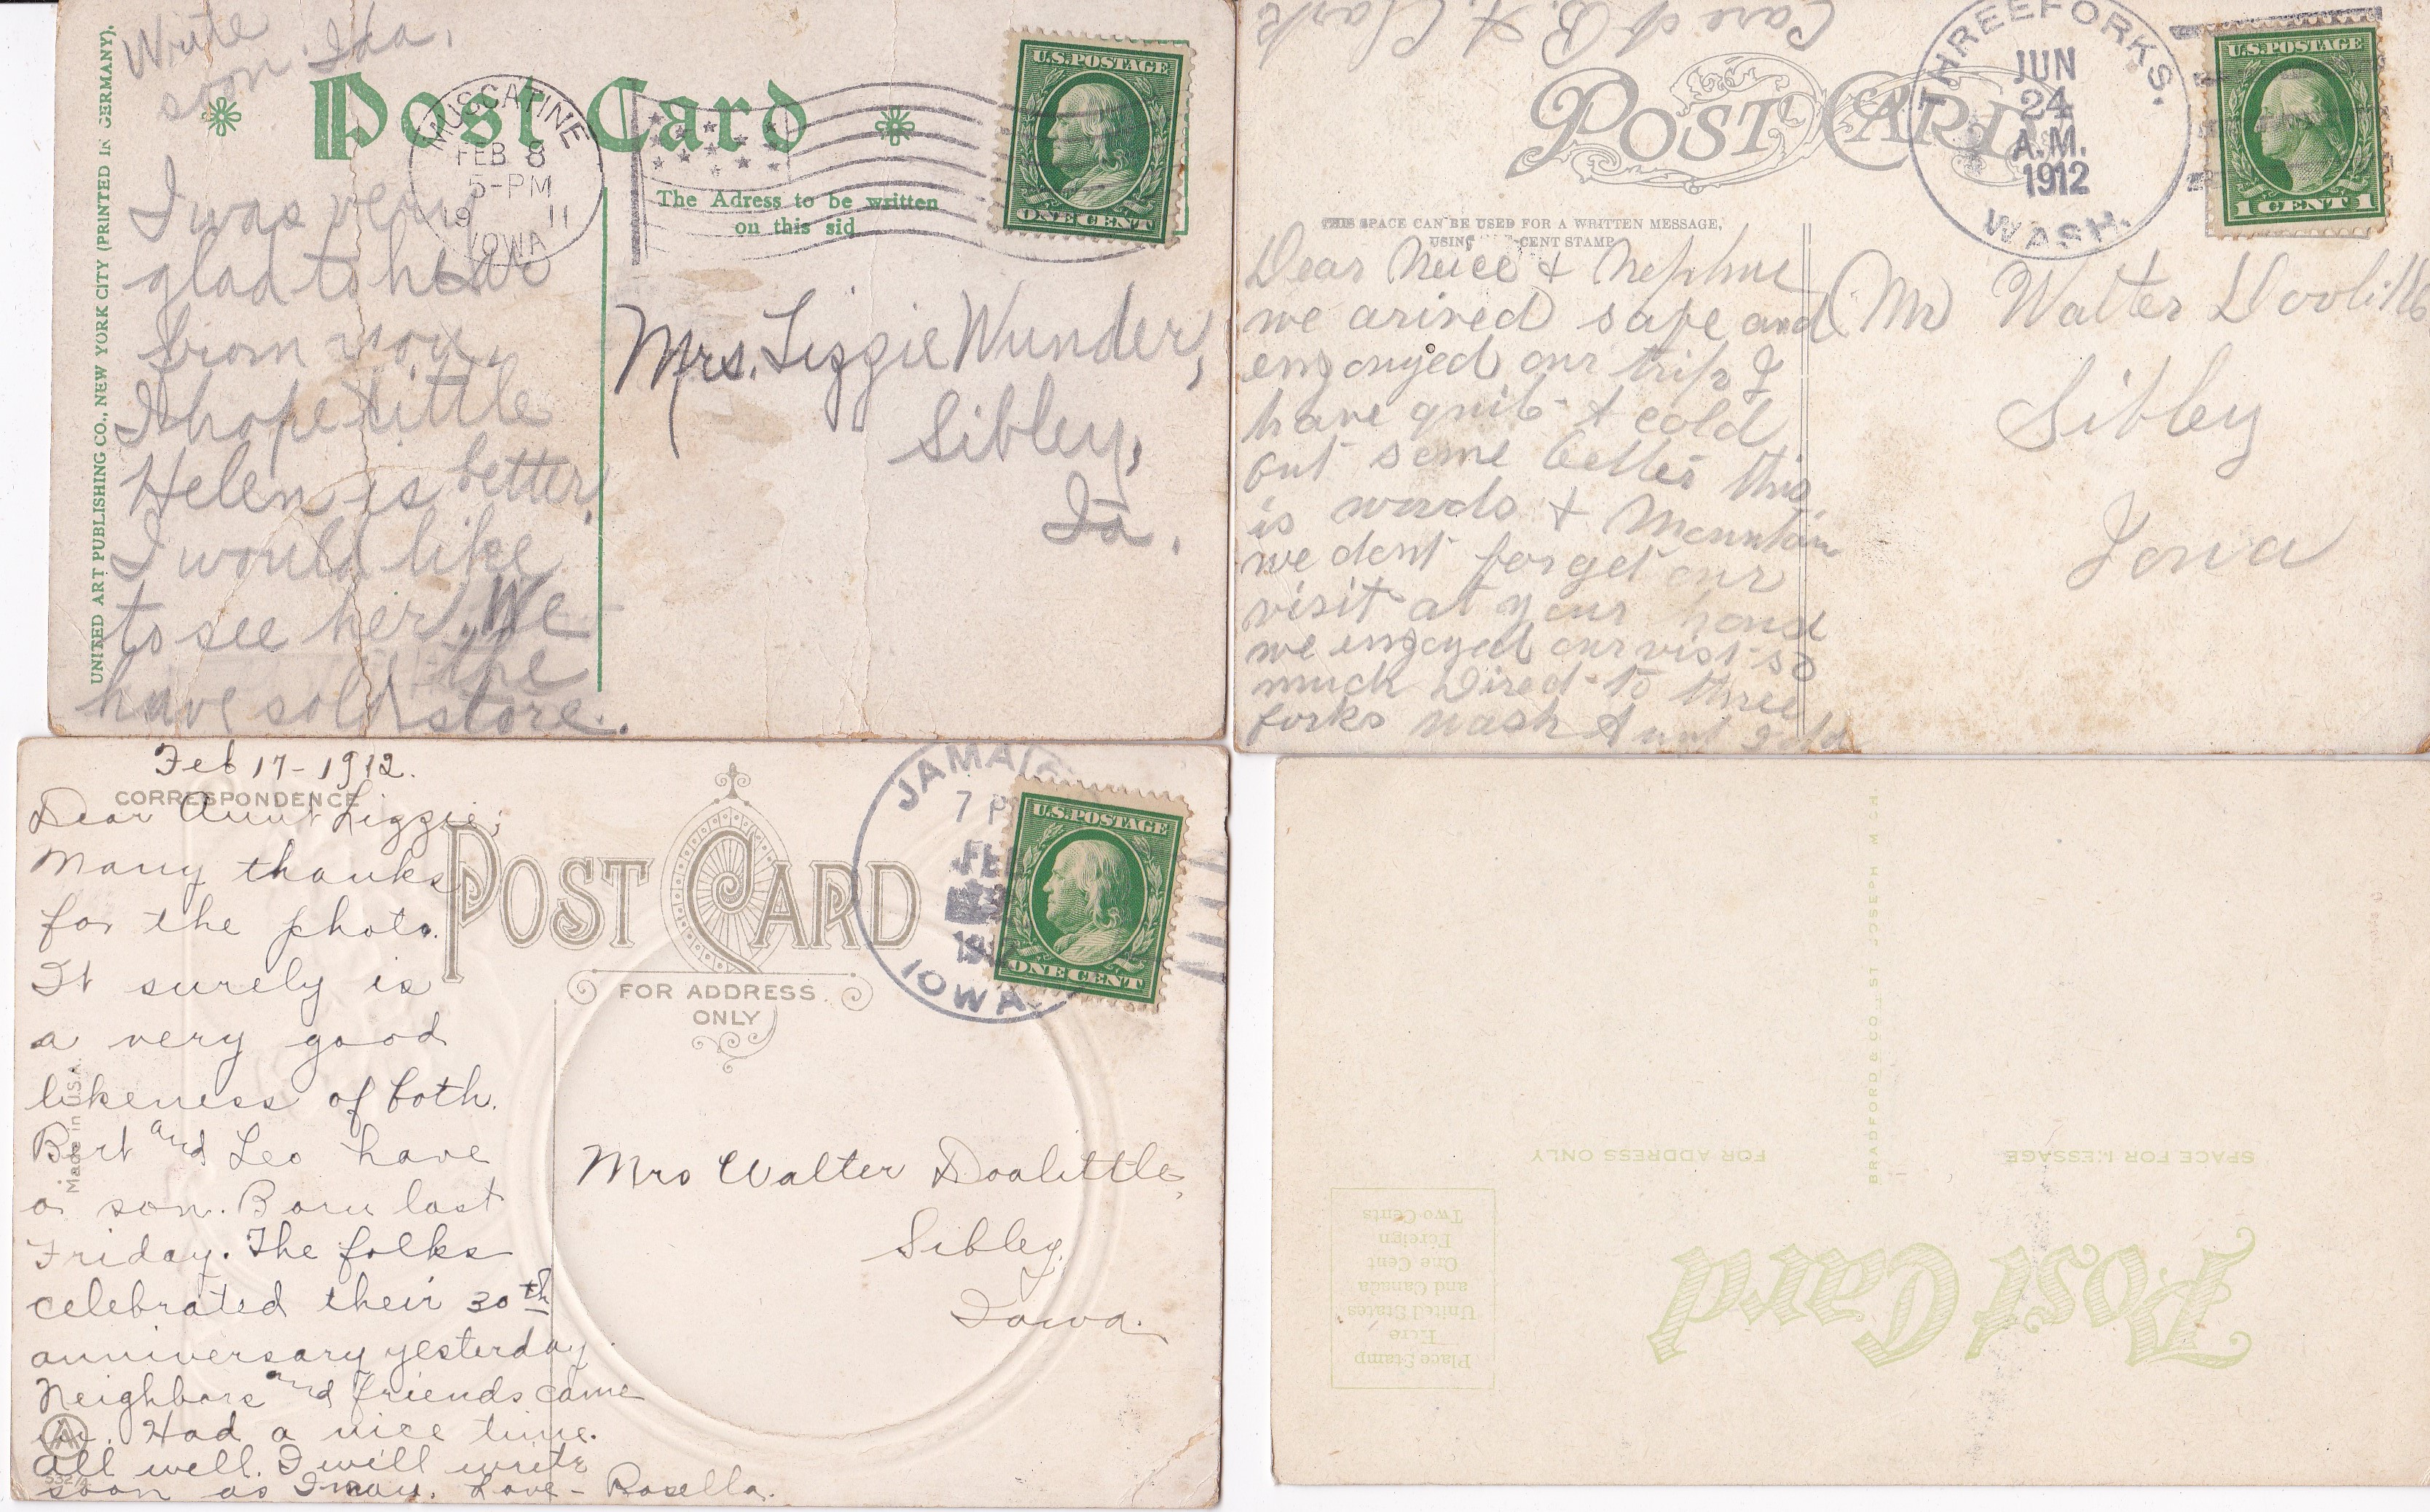 Write
soon. Ida.
Post Card
MUSCATINE
FEB 8
5-PM
19 11
IOWA
U.S. POSTAGE
ONE CENT
The Adress to be written
on this sid
UNITED ART PUBLISHING CO., NEW YORK CITY (PRINTED IN GERMANY).
I was very
glad to hear
from you.
I hope little
Helen is better.
I would like
to see her. We
have sold the store.
Mrs. Lizzie Wunder,
Sibley,
Ia.
Care of B. F. Clark
POST CARD
THREEFORKS.
JUN
24
A.M.
1912
WASH.
U.S. POSTAGE
1 CENT 1
THIS SPACE CAN BE USED FOR A WRITTEN MESSAGE,
USING -CENT STAMP
Dear Neice & Nephue
we arived safe and
enjoyed our trip I
have quit a cold
but some better this
is woods & Mountain
we dont forget our
visit at your house
we enjoyed our vist so
much Dired to three
forks wash Aunt
Mr Walter Doolittle
Sibley
Iowa
Feb 17-1912.
CORRESPONDENCE
Dear Aunt Lizzie;
Many thanks
for the photo.
It surely is
a very good
likeness of both.
Bert and Leo have
a son. Born last
Friday. The folks
celebrated their 30th
anniversary yesterday
Neighbors and friends came
in. Had a nice time.
All well. I will write
soon as I may. Love - Rosella.
Made in U.S.A.
POST CARD
FOR ADDRESS
ONLY
7 P
FEB
IOWA.
U.S. POSTAGE
ONE CENT
Mrs Walter Doolittle,
Sibley,
Iowa.
Post Card
SPACE FOR MESSAGE
FOR ADDRESS ONLY
Place Stamp
Here
United States
and Canada
One Cent
Foreign
Two Cents
BRADFORD & CO., ST. JOSEPH, MICH.